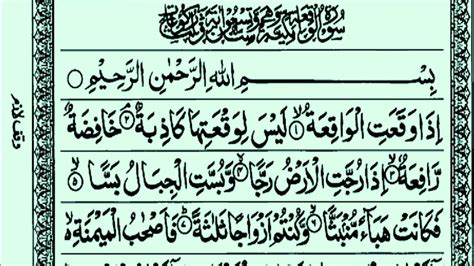 سُوْرَةُ الْوَاقِعَةِ مَكِّيَّةٌ
بِسْمِ اللهِ الرَّحْمٰنِ الرَّحِيْمِ
اِذَا وَقَعَتِ الْوَاقِعَةُ ۙ۝۱ لَيْسَ لِوَقْعَتِهَا كَاذِبَةٌ ۘ۝۲ خَافِضَةٌ
رَّافِعَةٌ ۙ۝۳ اِذَا رُجَّتِ الْاَرْضُ رَجًّا ۙ۝۴ وَّبُسَّتِ الْجِبَالُ بَسًّا ۙ۝۵
فَكَانَتْ هَبَآءً مُّنْۢبَثًّا ۙ۝۶ وَّكُنْتُمْ اَزْوَاجًا ثَلٰثَةً ؕ۝۷ فَاَصْحٰبُ الْمَيْمَنَةِ ۙ۬
وقف لازم